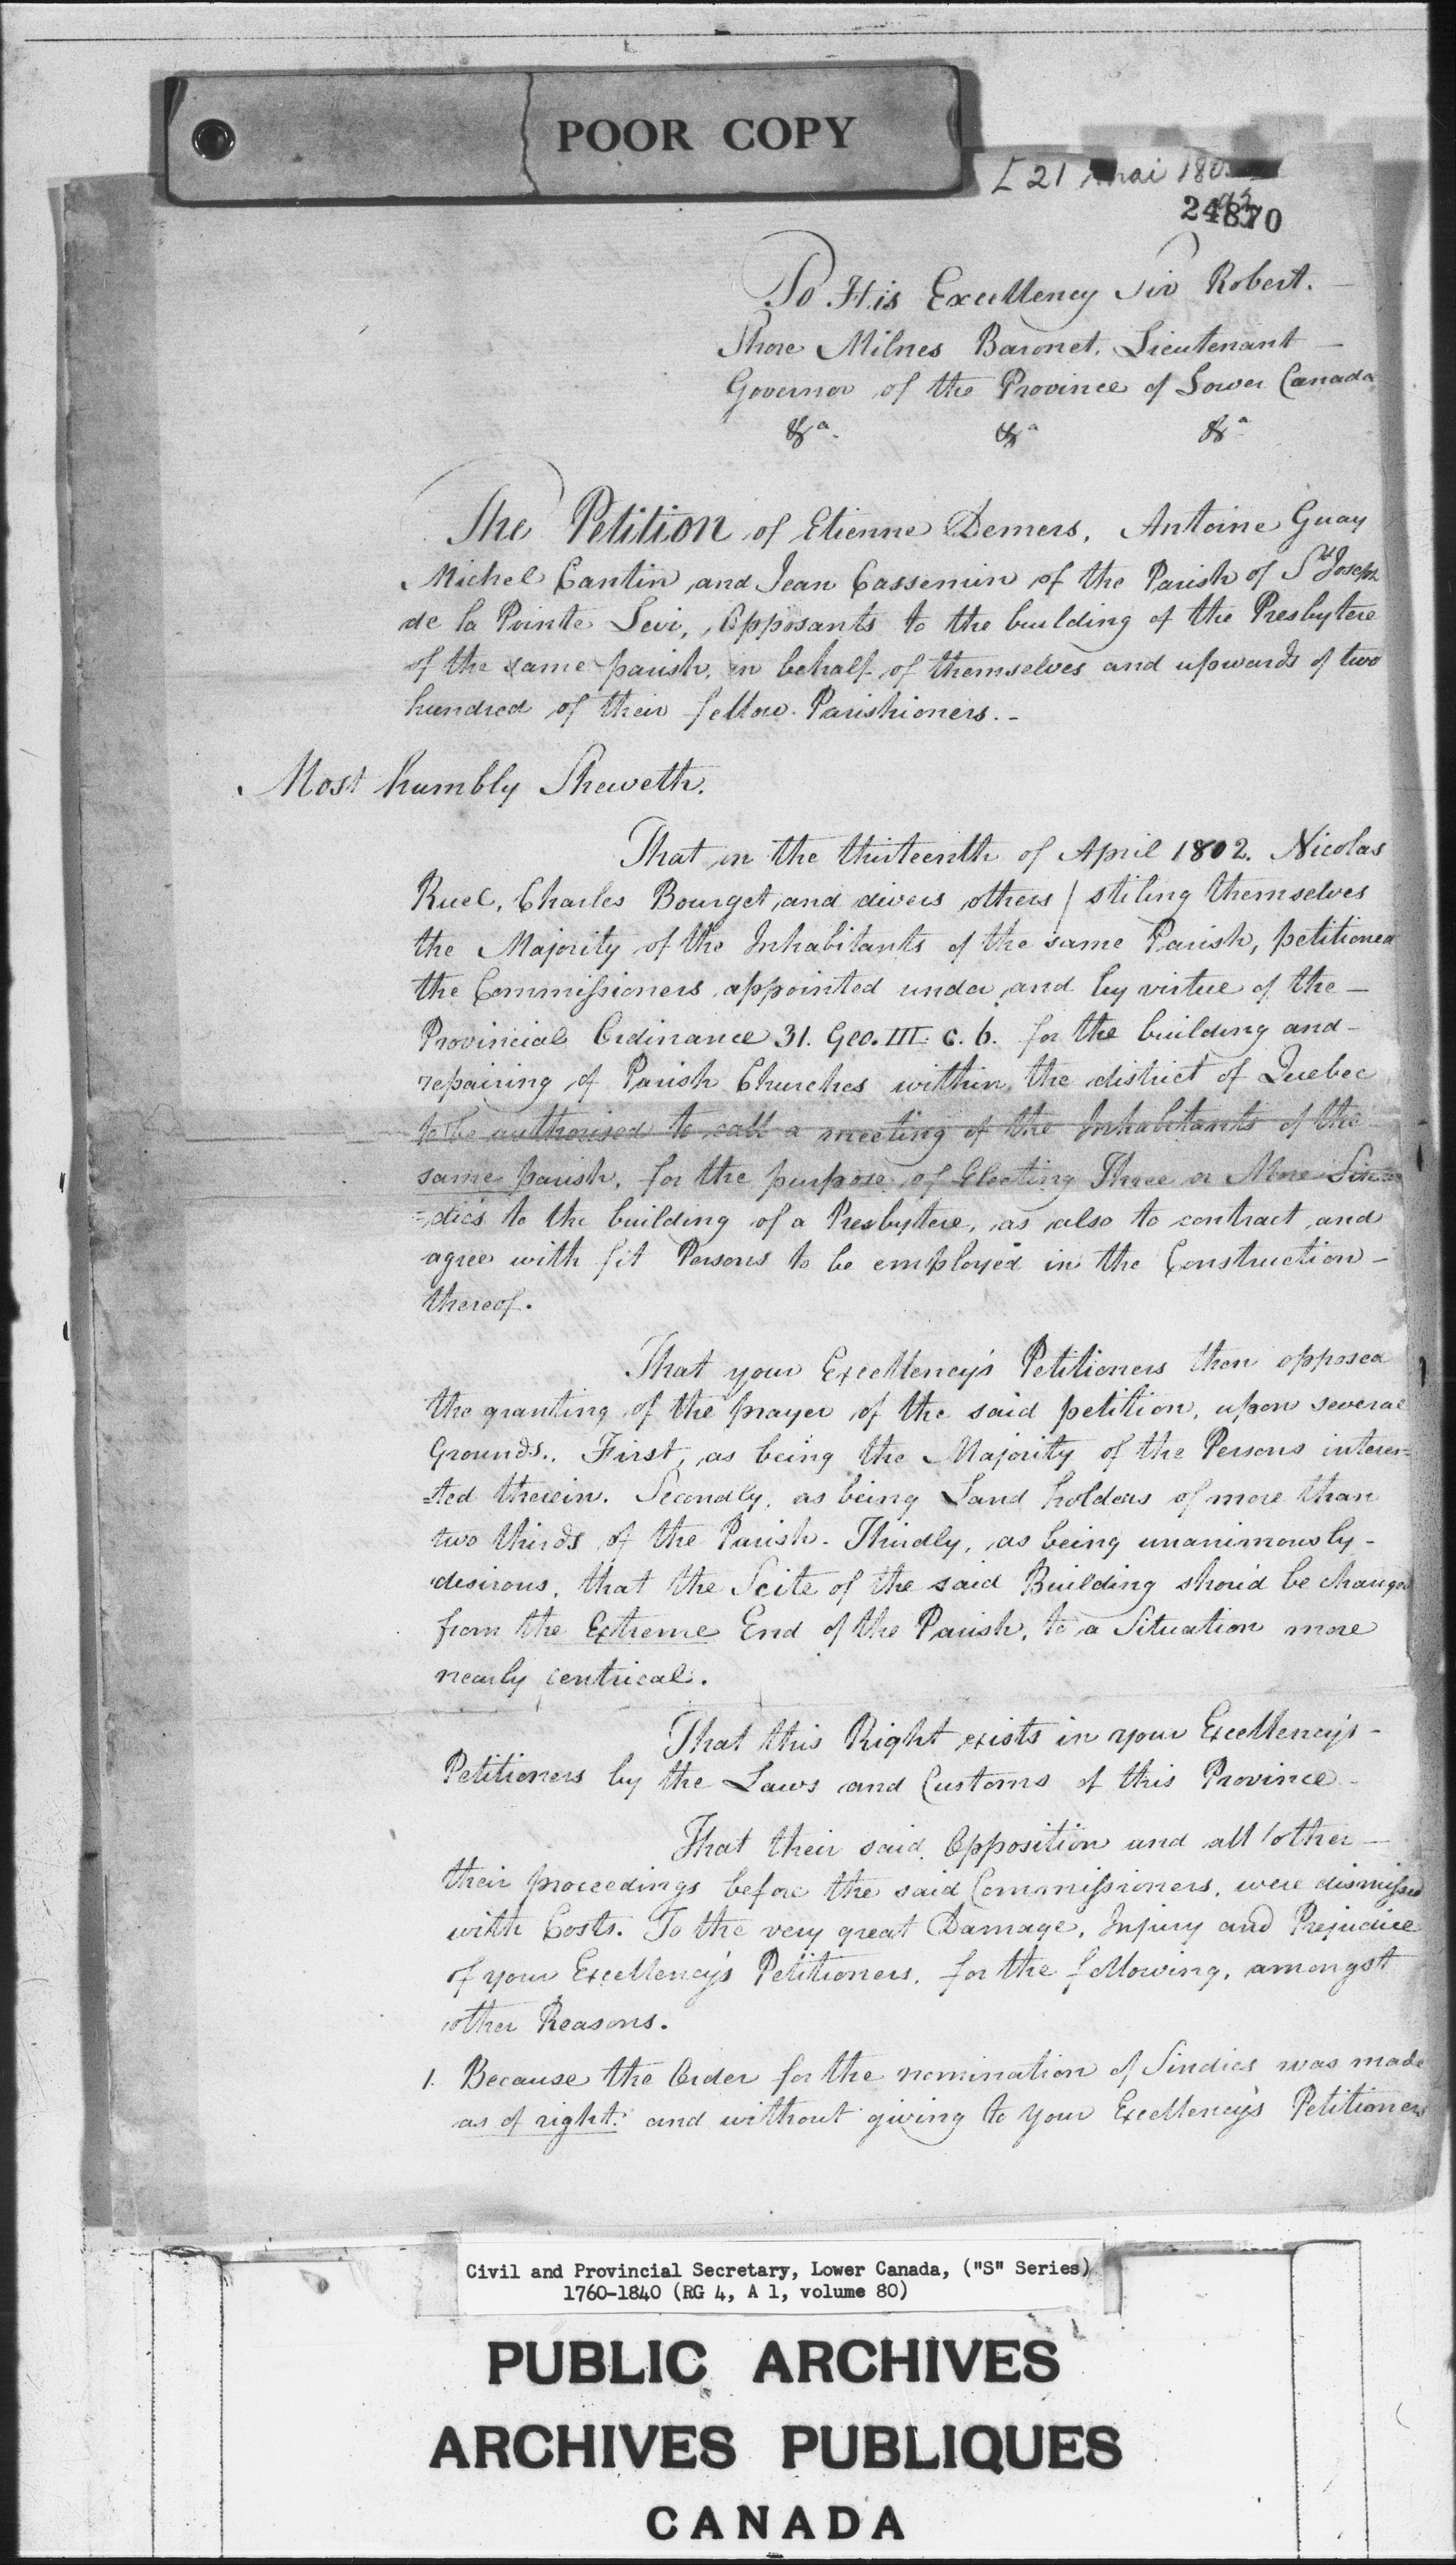 POOR COPY
[21 mai 180
24870
To His Excellency Sir Robert.
Shore Milnes Baronet. Lieutenant
Governor of the Province of Lower Canada
&a. &a &a
The Petition of Etienne Demers, Antoine Guay
Michel Cantin and Jean Cassemin of the Parish of St Joseph
de la Pointe Levi, Opposants to the building of the Presbytere
of the same parish, in behalf of themselves and upwards of two
hundred of their fellow Parishioners.-
Most humbly Sheweth.
That on the thirteenth of April 1802. Nicolas
Ruel, Charles Bourget and divers others / stiling themselves
the Majority of the Inhabitants of the same Parish, petitioned
the Commissioners appointed under and by virtue of the
Provincial Ordinance 31. Geo. III. c. 6. for the building and
repairing of Parish Churches within the district of Quebec
to be authorised to call a meeting of the Inhabitants of the
same parish, for the purpose of Electing Three or More Sin=
=dics to the building of a Presbytere, as also to contract and
agree with fit Persons to be employed in the Construction
thereof.
That your Excellency's Petitioners then opposed
the granting of the prayer of the said petition, upon several
Grounds.. First, as being the Majority of the Persons interes=
=ted therein. Secondly, as being Land holders of more than
two thirds of the Parish. Thirdly, as being unanimously
desirous, that the Scite of the said Building should be changed
from the Extreme End of the Parish, to a Situation more
nearly centrical.
That this Right exists in your Excellency's
Petitioners by the Laws and Customs of this Province
That their said Opposition and all other
their proceedings before the said Commissioners, were dismissed
with Costs. To the very great Damage, Injury and Prejudice
of your Excellency's Petitioners, for the following, amongst
other Reasons.
1. Because the Order for the nomination of Sindics was made
as of right: and without giving to your Excellency's Petitioners
Civil and Provincial Secretary, Lower Canada, ("S" Series)
1760-1840 (RG 4, A 1, volume 80)
PUBLIC ARCHIVES
ARCHIVES PUBLIQUES
CANADA